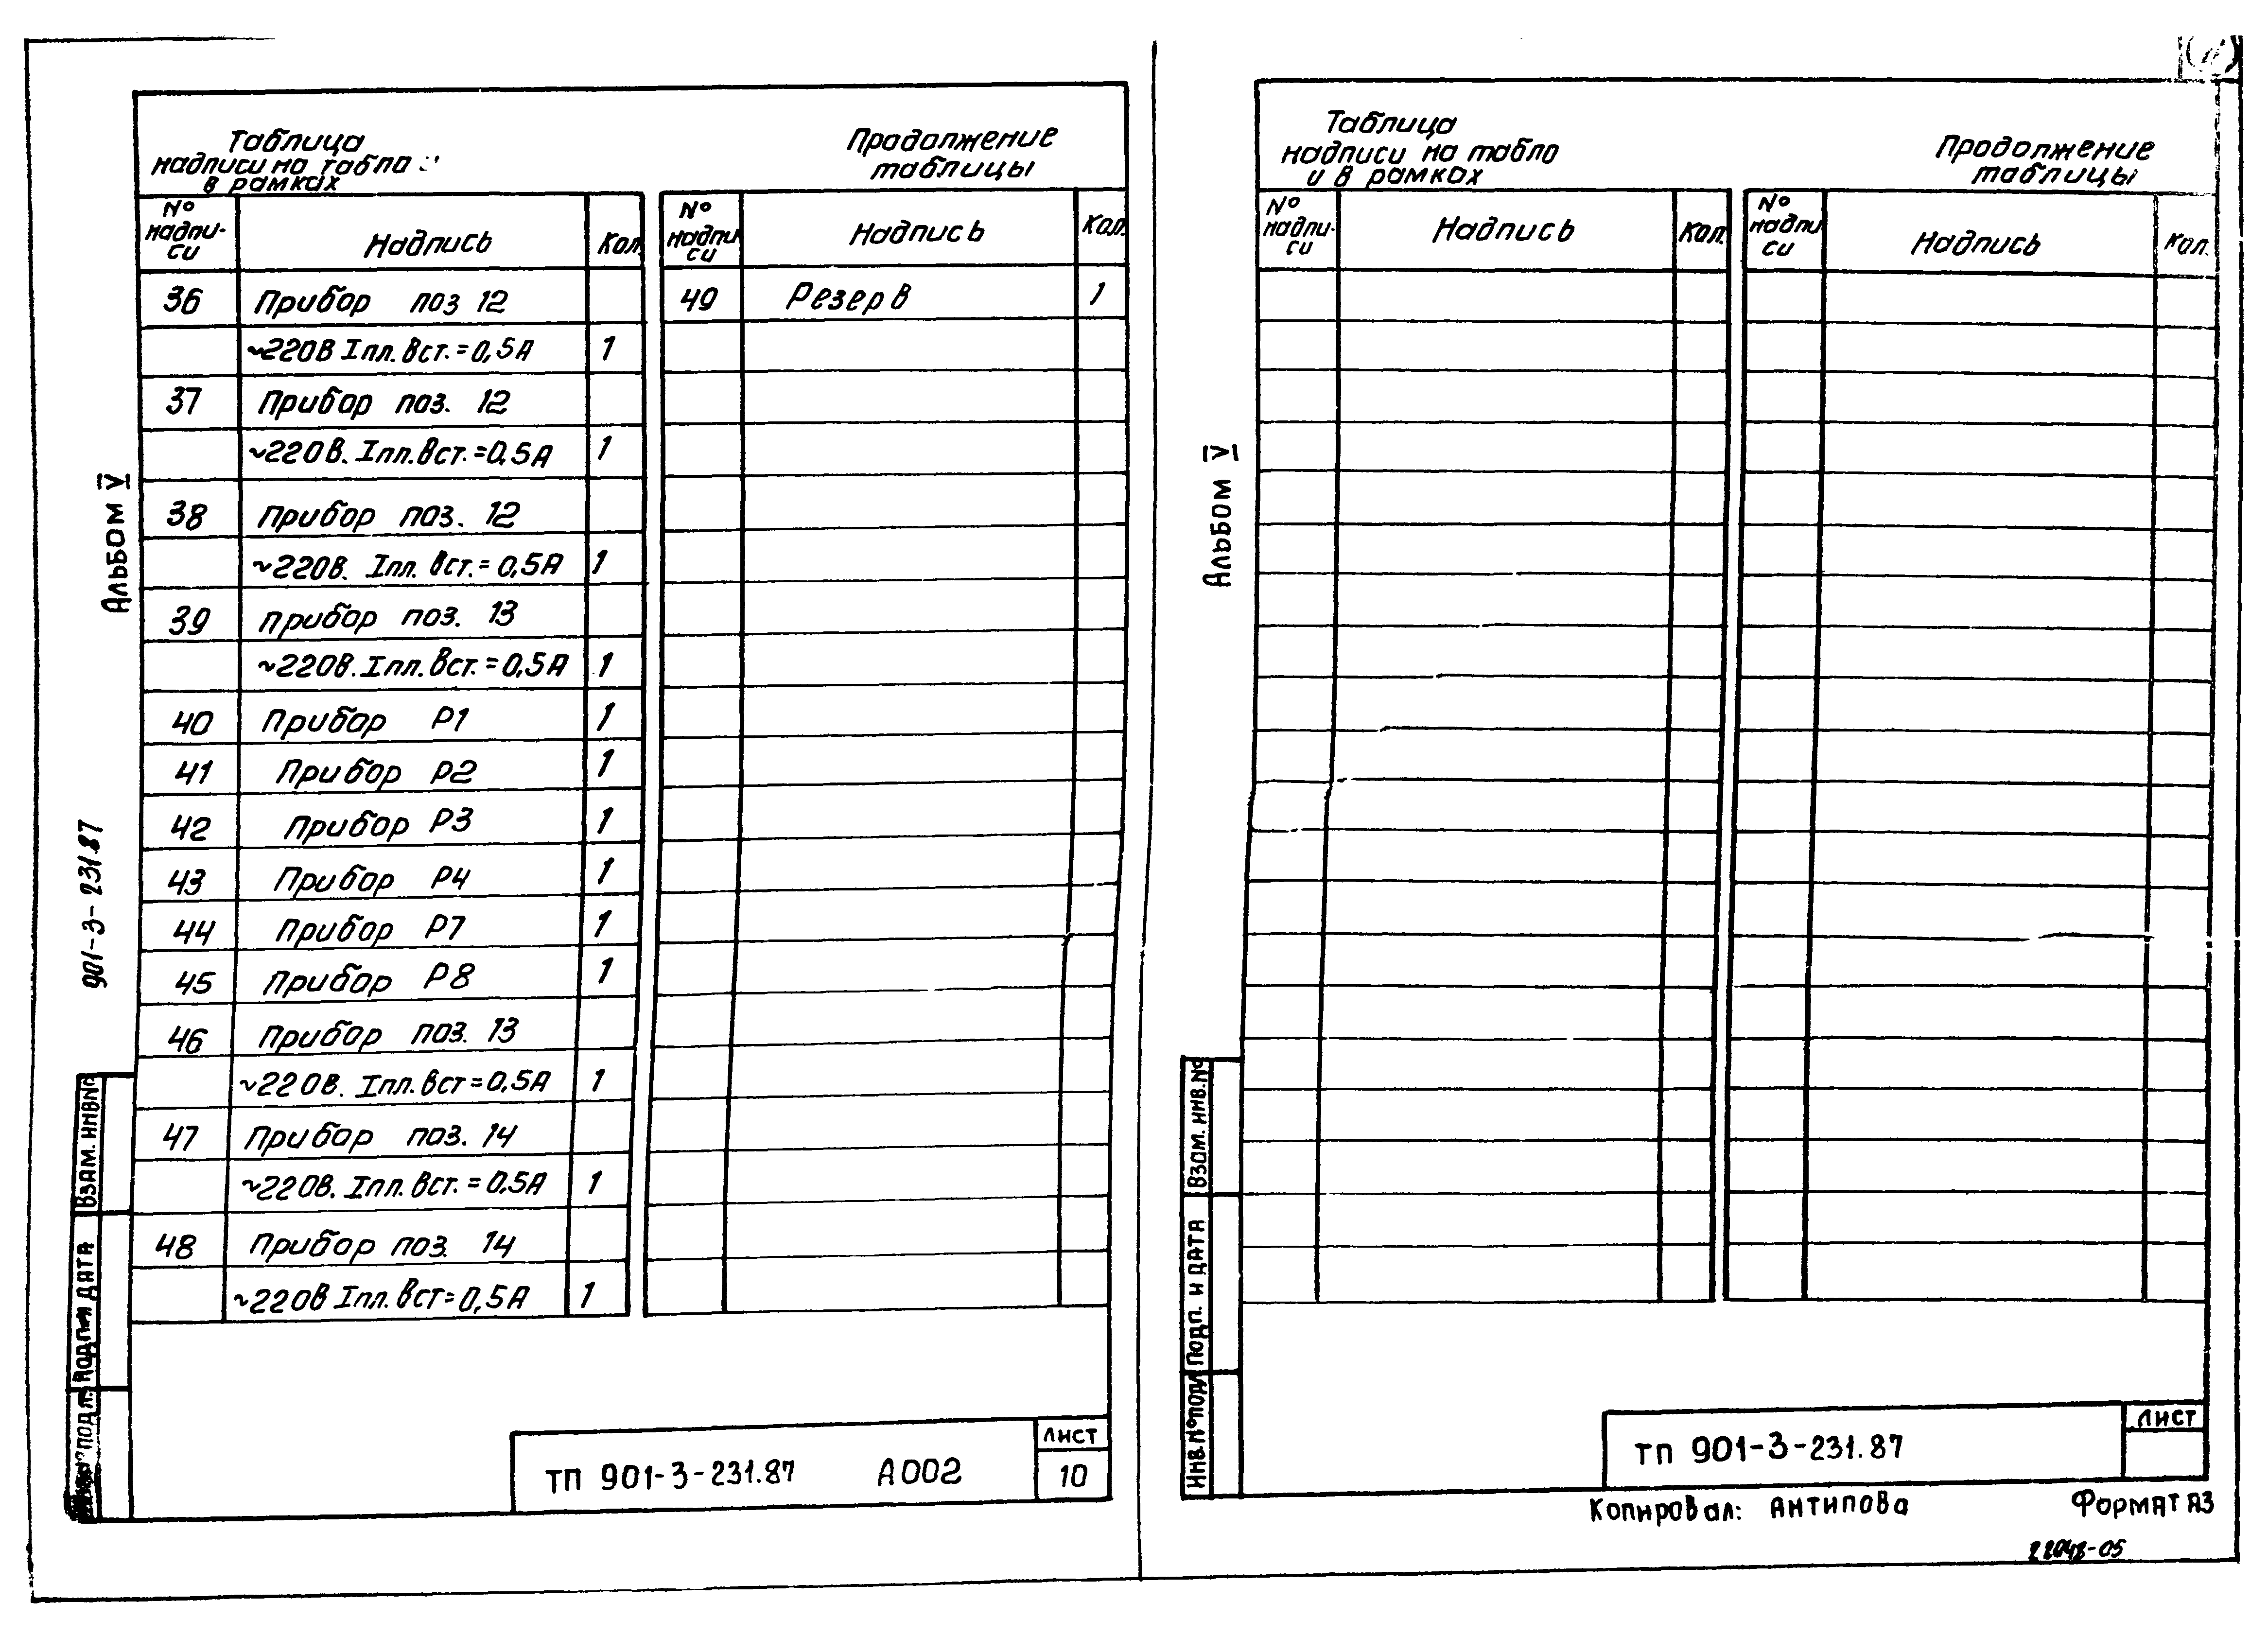 Таблица
надписи на табло
в рамках
Продолжение
таблицы
№ надпи-си Надпись Кол.
36 Прибор поз 12
~220В Iпл. вст. = 0,5А 1
37 Прибор поз. 12
~220В. Iпл. вст. = 0,5А 1
38 Прибор поз. 12
~220В. Iпл. вст. = 0,5А 1
39 прибор поз. 13
~220В. Iпл. вст. = 0,5А 1
40 Прибор Р1 1
41 Прибор Р2 1
42 Прибор Р3 1
43 Прибор Р4 1
44 Прибор Р7 1
45 Прибор Р8 1
46 Прибор поз. 13
~220В. Iпл. вст = 0.5А 1
47 Прибор поз. 14
~220В. Iпл. вст. = 0,5А 1
48 Прибор поз. 14
~220В Iпл. вст = 0,5А 1
№ надпи си Надпись Кол.
49 Резерв 1
Альбом V
901-3-231.87
Взам. инв №
Подп и дата
№ подл.
ТП 901-3-231.87 А002
лист
10
Таблица
надписи на табло
и в рамках
Продолжение
таблицы
№ надпи-си Надпись Кол.
№ надпи си Надпись Кол.
Альбом V
Взам. инв. №
Подп. и дата
Инв. № подл
ТП 901-3-231.87
лист
Копировал: Антипова
Формат А3